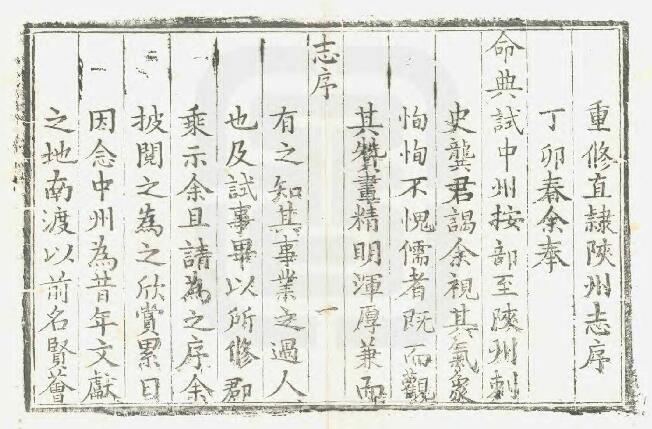 重修直隷陝州志序
丁卯春余奉
命典試中州按部至陝州刺
史龔君謁余視其氣象
恂恂不愧儒者既而觀
其贊畫精明渾厚兼而
志序
一
有之知其事業之過人
也及試事畢以所修郡
乘示余且請為之序余
披閱之為之欣賞累日
因念中州為昔年文獻
之地南渡以前名賢薈